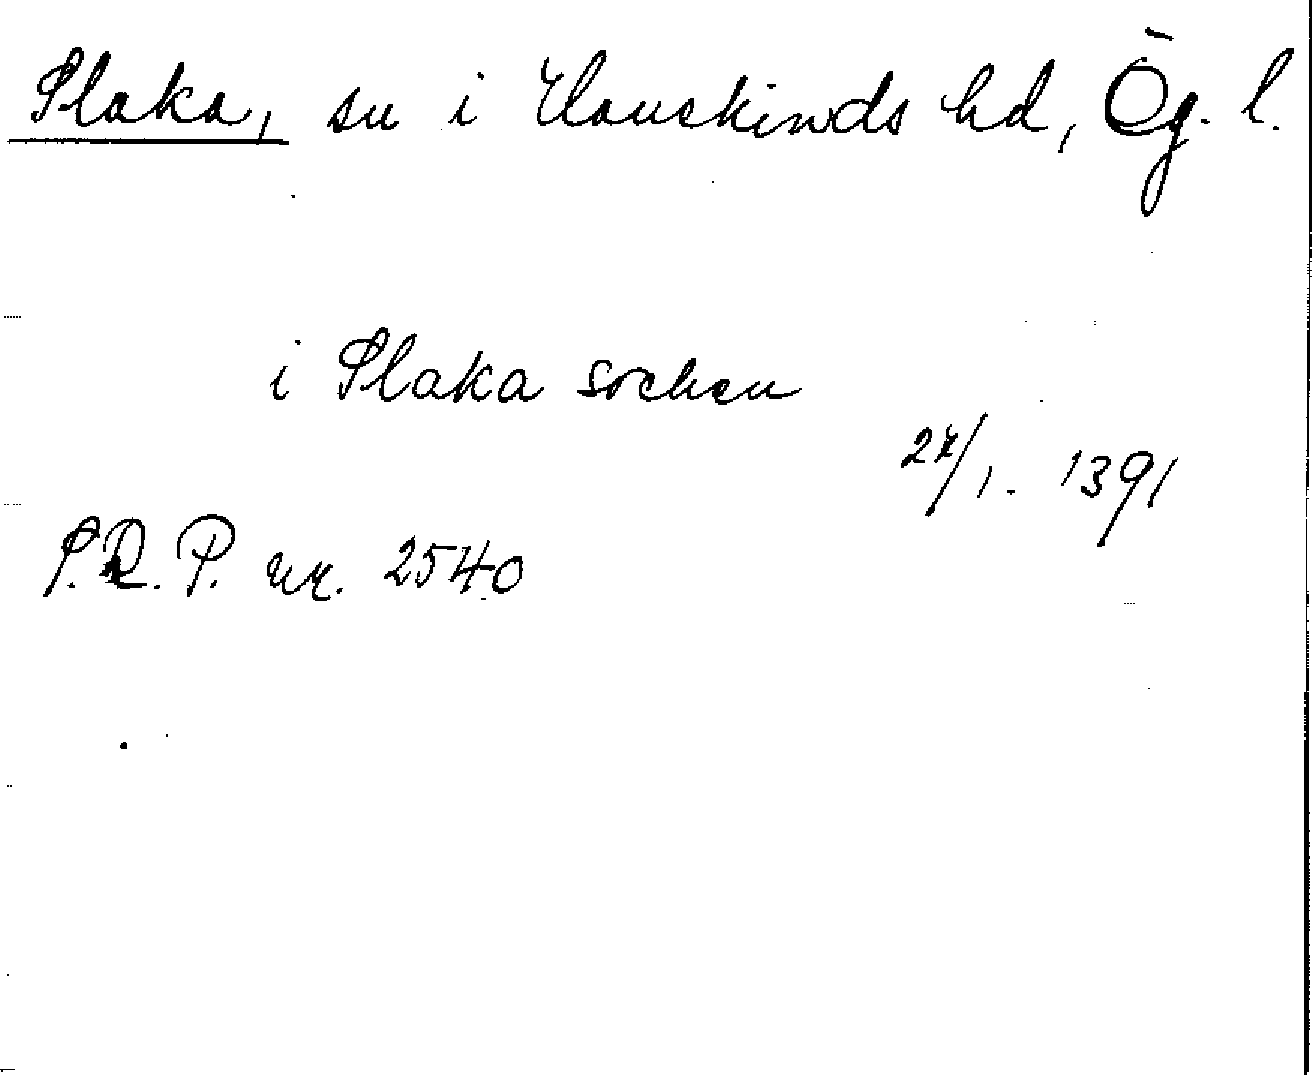 Slaka, sn i Hanekinds hd, Ög. l.
i Slaka sochen
1391
S.R.P. nr. 2540